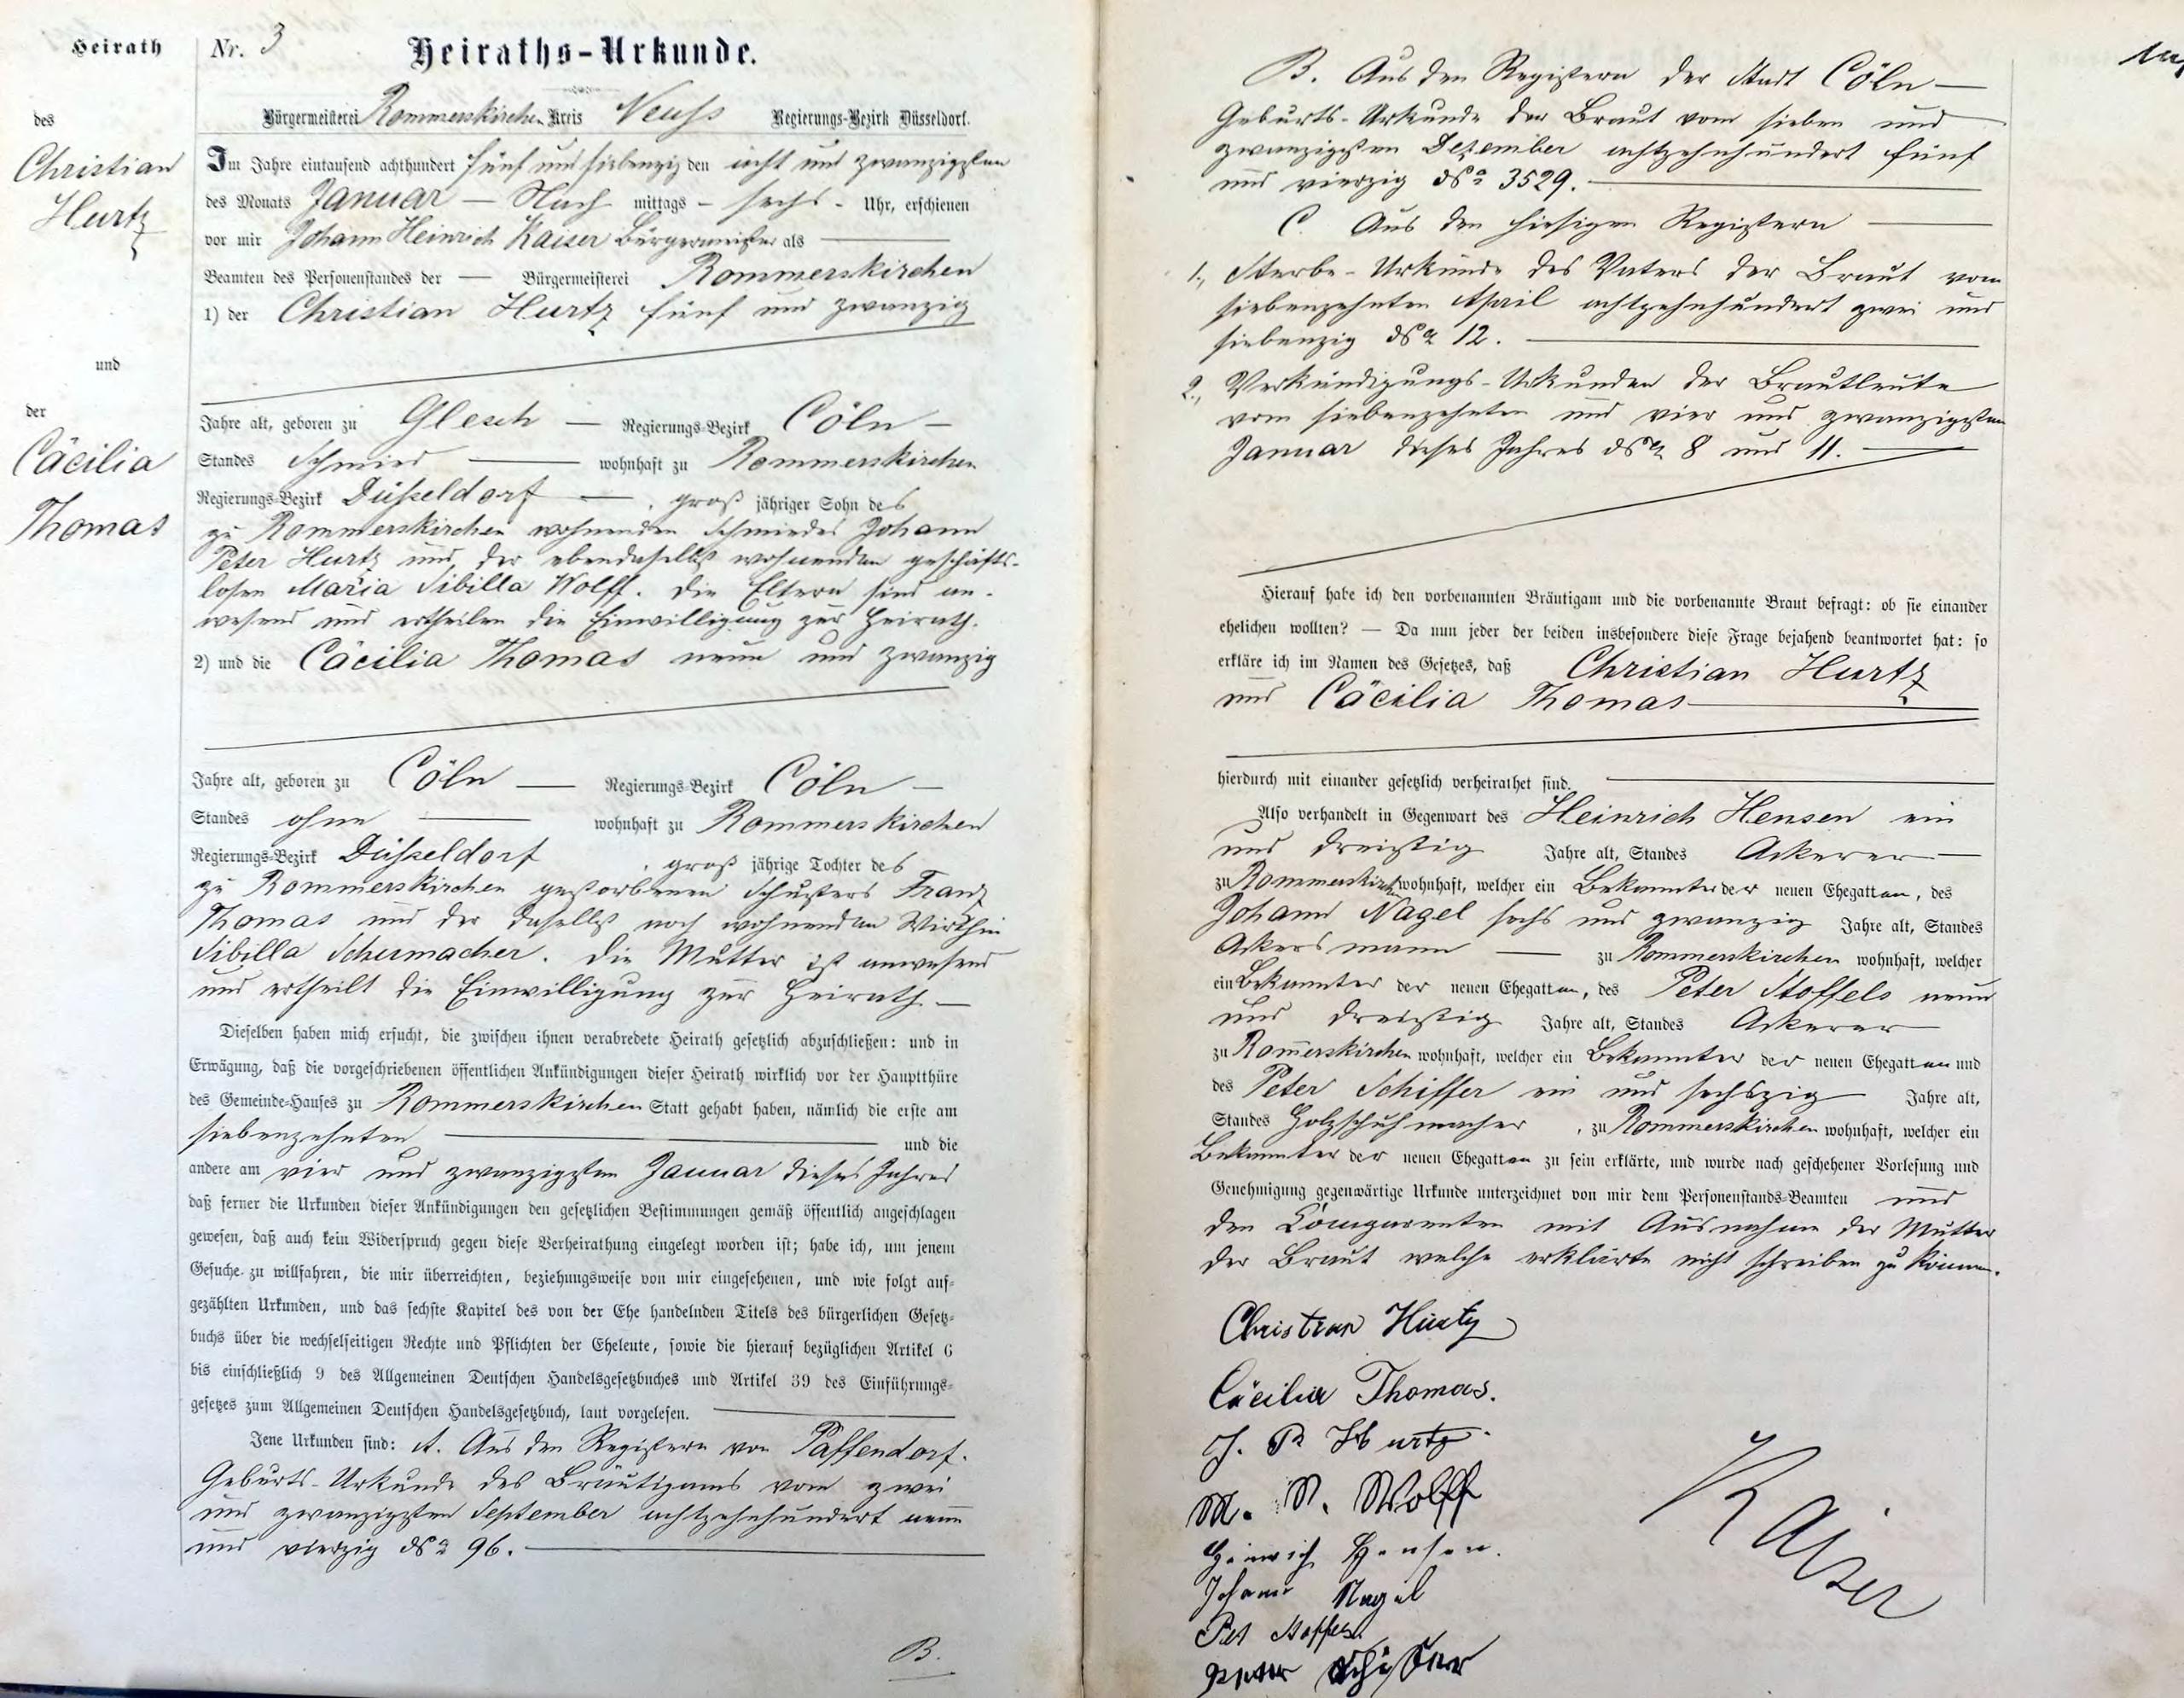 Heirath
des
Christian
Hurtz
und
der
Cäcilia
Thomas
Nr. 3 Heiraths-Urkunde.
Bürgermeisterei Rommerskirchen Kreis Neuss Regierungs-Bezirk Düsseldorf.
Im Jahre eintausend achthundert fünf und siebenzig den acht und zwanzigsten
des Monats Januar — Nach mittags - sechs - Uhr, erschienen
vor mir Johann Heinrich Kaiser Bürgermeister als
Beamten des Personenstandes der — Bürgermeisterei Rommerskirchen
1) der Christian Hurtz fünf und zwanzig
Jahre alt, geboren zu Glesch — Regierungs-Bezirk Cöln —
Standes Schmied — wohnhaft zu Rommerskirchen
Regierungs-Bezirk Düsseldorf —, groß jähriger Sohn des
zu Rommerskirchen wohnenden Schmiedes Johann
Peter Hurtz und der ebendaselbst wohnenden geschäfts-
losen Maria Sibilla Wolff. Die Eltern sind an-
wesend und ertheilen die Einwilligung zur Heirath.
2) und die Cäcilia Thomas neun und zwanzig
Jahre alt, geboren zu Cöln — Regierungs-Bezirk Cöln —
Standes ohne — wohnhaft zu Rommerskirchen
Regierungs-Bezirk Düsseldorf, groß jährige Tochter des
zu Rommerskirchen gestorbenen Schusters Franz
Thomas und der daselbst noch wohnenden Wirthin
Sibilla Schumacher. Die Mutter ist anwesend
und ertheilt die Einwilligung zur Heirath. —
Dieselben haben mich ersucht, die zwischen ihnen verabredete Heirath gesetzlich abzuschließen: und in
Erwägung, daß die vorgeschriebenen öffentlichen Ankündigungen dieser Heirath wirklich vor der Hauptthüre
des Gemeinde-Hauses zu Rommerskirchen Statt gehabt haben, nämlich die erste am
siebenzehnten — und die
andere am vier und zwanzigsten Januar dieses Jahres
daß ferner die Urkunden dieser Ankündigungen den gesetzlichen Bestimmungen gemäß öffentlich angeschlagen
gewesen, daß auch kein Widerspruch gegen diese Verheirathung eingelegt worden ist; habe ich, um jenem
Gesuche zu willfahren, die mir überreichten, beziehungsweise von mir eingesehenen, und wie folgt auf-
gezählten Urkunden, und das sechste Kapitel des von der Ehe handelnden Titels des bürgerlichen Gesetz-
buchs über die wechselseitigen Rechte und Pflichten der Eheleute, sowie die hierauf bezüglichen Artikel 6
bis einschließlich 9 des Allgemeinen Deutschen Handelsgesetzbuches und Artikel 39 des Einführungs-
gesetzes zum Allgemeinen Deutschen Handelsgesetzbuch, laut vorgelesen.
Jene Urkunden sind: A. Aus den Registern von Paffendorf.
Geburts-Urkunde des Bräutigams vom zwei
und zwanzigsten September achtzehnhundert neun
und vierzig No 96.
B.
B. Aus den Registern der Stadt Cöln —
Geburts-Urkunde der Braut vom sieben und
zwanzigsten Dezember achtzehnhundert fünf
und vierzig No 3529.
C. Aus den hiesigen Registern
1., Sterbe-Urkunde des Vaters der Braut vom
siebenzehnten April achtzehnhundert zwei und
siebenzig No 12.
2., Verkündigungs-Urkunden der Brautleute
vom siebenzehnten und vier und zwanzigsten
Januar dieses Jahres No 8 und 11.
Hierauf habe ich den vorbenannten Bräutigam und die vorbenannte Braut befragt: ob sie einander
ehelichen wollten? — Da nun jeder der beiden insbesondere diese Frage bejahend beantwortet hat: so
erkläre ich im Namen des Gesetzes, daß Christian Hurtz
und Cäcilia Thomas
hierdurch mit einander gesetzlich verheirathet sind.
Also verhandelt in Gegenwart des Heinrich Hensen ein
und dreißig Jahre alt, Standes Ackerer —
zu Rommerskirchen wohnhaft, welcher ein Bekannter der neuen Ehegatten, des
Johann Nagel sechs und zwanzig Jahre alt, Standes
Ackersmann — zu Rommerskirchen wohnhaft, welcher
ein Bekannter der neuen Ehegatten, des Peter Stoffels neun
und dreißig Jahre alt, Standes Ackerer
zu Rom̅erskirchen wohnhaft, welcher ein Bekannter der neuen Ehegatten und
des Peter Schiffer ein und sechszig Jahre alt,
Standes Holzschuhmacher, zu Rommerskirchen wohnhaft, welcher ein
Bekannter der neuen Ehegatten zu sein erklärte, und wurde nach geschehener Vorlesung und
Genehmigung gegenwärtige Urkunde unterzeichnet von mir dem Personenstands-Beamten und
den Comparenten mit Ausnahme der Mutter
der Braut welche erklärte nicht schreiben zu können.
Christian Hurtz
Cäcilia Thomas.
J. P Hurtz
M. S. Wolff
Heinrich Hensen.
Johann Nagel
Pet Stoffels
Peter Schiffer
Kaiser